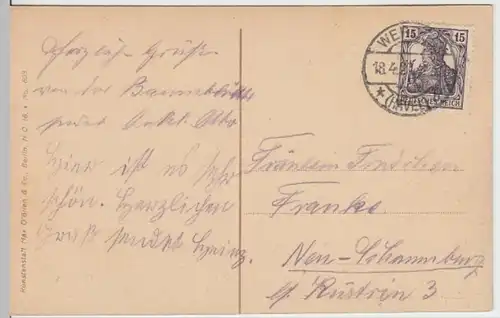 Herzliche Grüße
von der Baumblüte
sendet Onkel Otto
Hier ist es sehr
schön. Herzlichen
Gruß sendet Heinz.
WE
18.4.
15 15
REICH
Fräulein Frидchen
Franke
Neu-Schaumburg
b/ Küstrin 3
Kunstanstalt Max O'Brien & Co., Berlin, N.O 18.